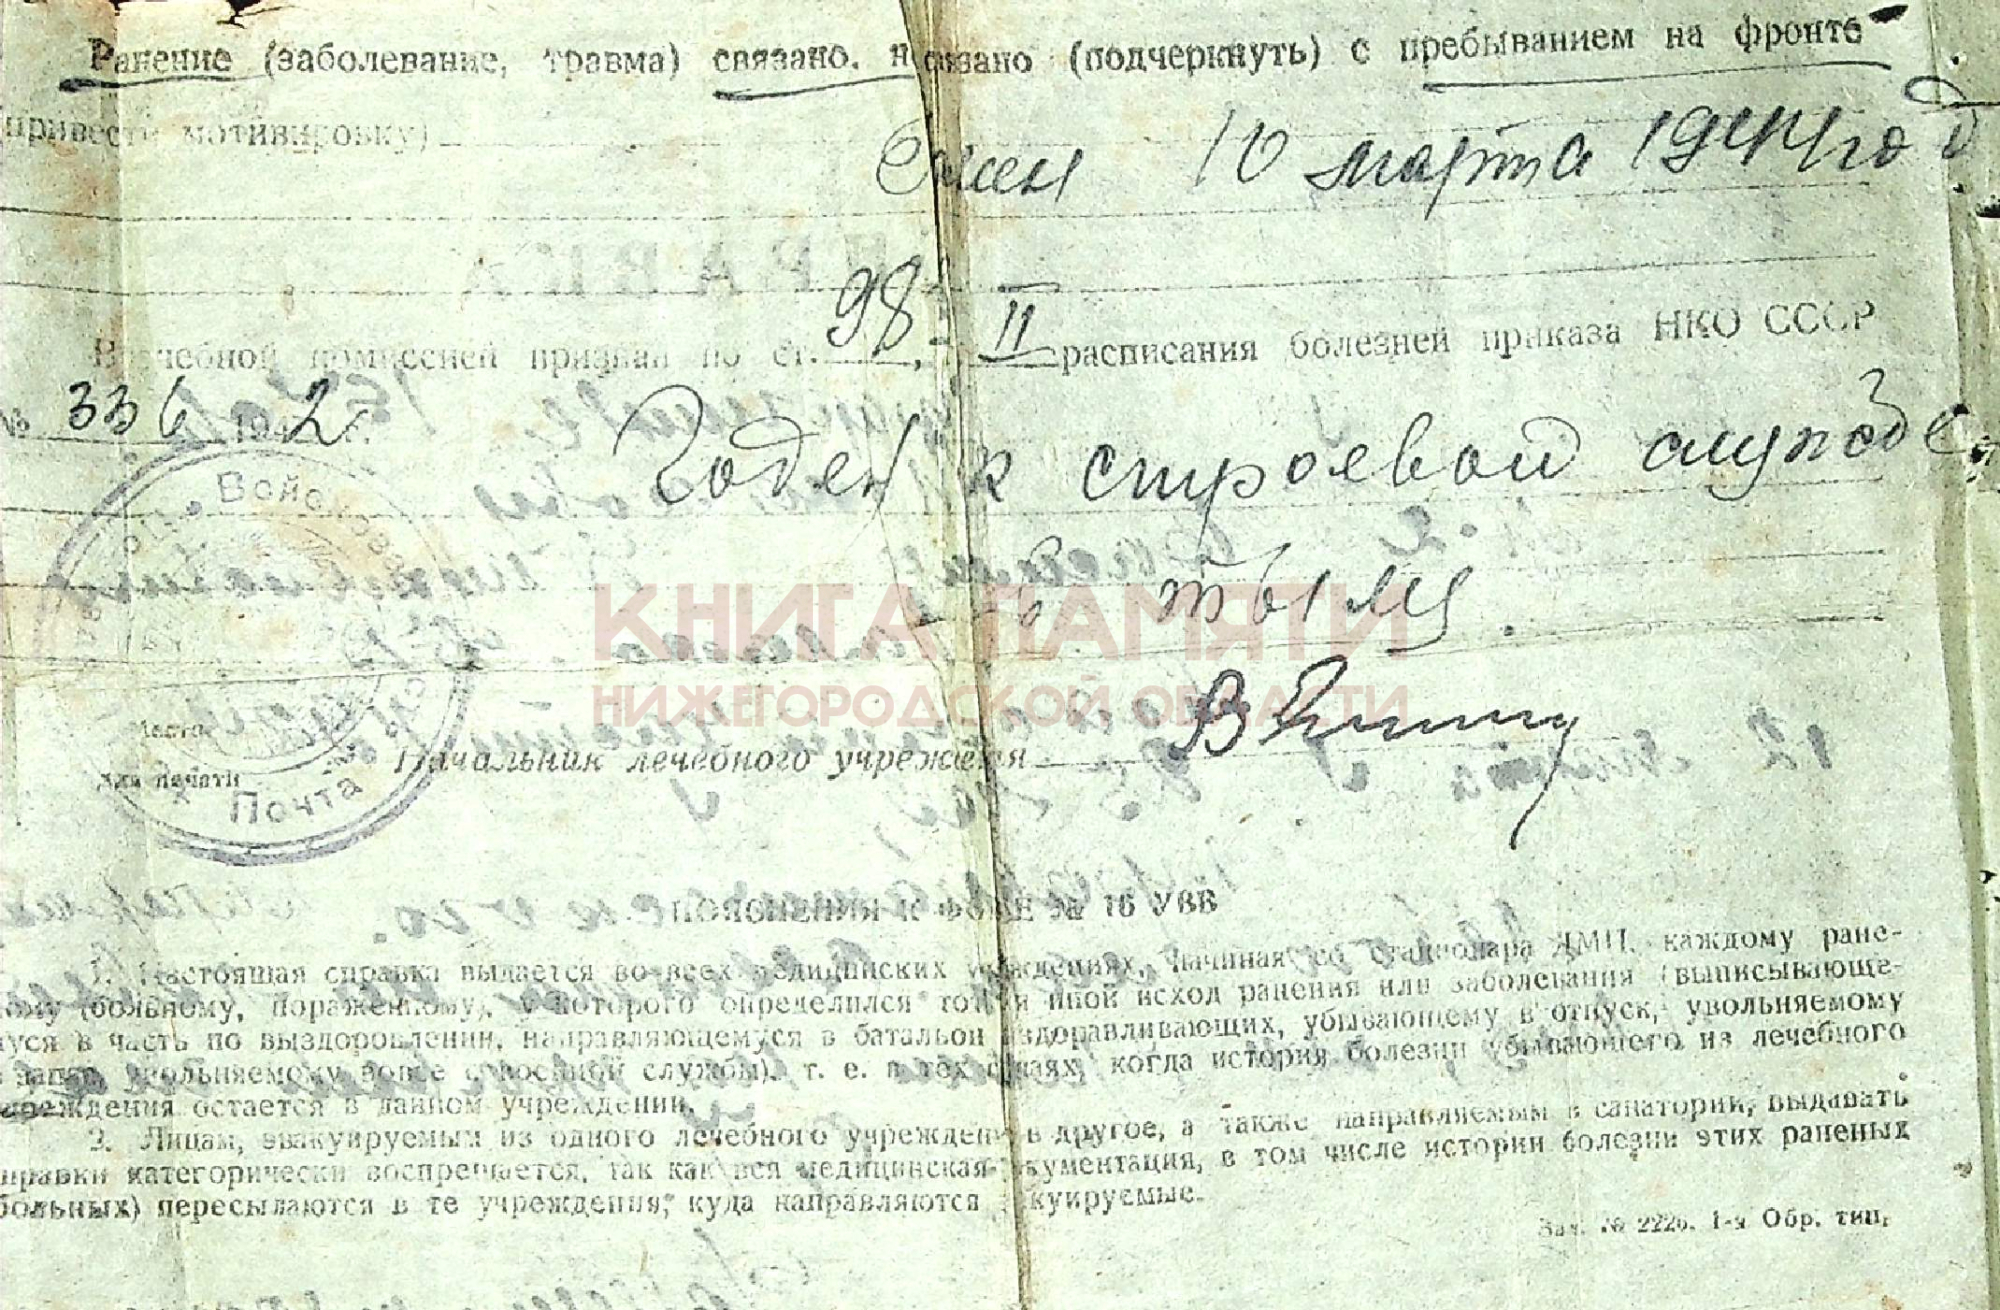 Ранение (заболевание, травма) связано, н связано (подчеркнуть) с пребыванием на фронте
привести мотивировку)
10 марта 1944 год
98, II расписания болезней приказа НКО СССР
Врачебной комиссией признан по ст.
№ 336 194 2 г.
Годен к строевой службе.
в тылу.
Войсковая
Место
для печати
Почта
Начальник лечебного учреждения
КНИГА ПАМЯТИ
НИЖЕГОРОДСКОЙ ОБЛАСТИ
ПОЯСНЕНИЯ К ФОРМЕ № 16 УВВ
1. Настоящая справка выдается во всех медицинских учреждениях, начиная со стационара ДМП, каждому ране-
ному (больному, пораженному), у которого определился тот или иной исход ранения или заболевания (выписывающе-
муся в часть по выздоровлении, направляющемуся в батальон выздоравливающих, убывающему в отпуск, увольняемому
в запас, увольняемому вовсе с военной службы), т. е. в тех случаях, когда история болезни убывающего из лечебного
учреждения остается в данном учреждении.
2. Лицам, эвакуируемым из одного лечебного учреждения в другое, а также направляемым в санатории, выдавать
справки категорически воспрещается, так как вся медицинская документация, в том числе истории болезни этих раненых
больных) пересылаются в те учреждения, куда направляются эвакуируемые.
Зак. № 2226. 1-я Обр. тип.